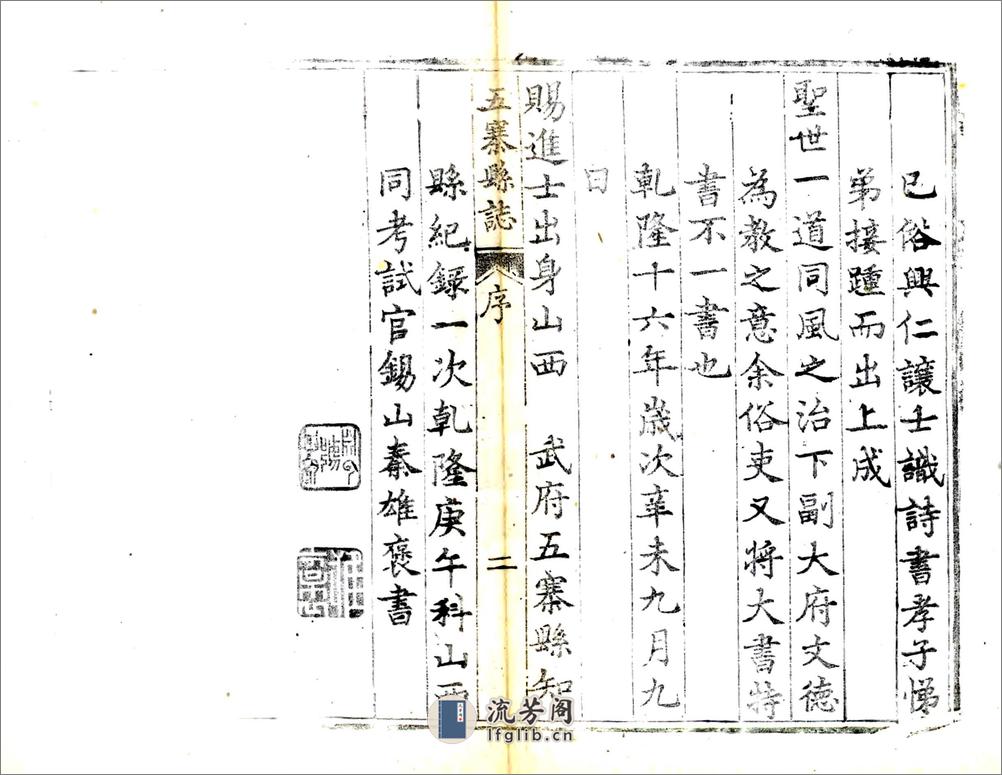 已俗興仁讓士識詩書孝子悌
弟接踵而出上成
聖世一道同風之治下副大府文德
為教之意余俗吏又將大書特
書不一書也
乹隆十六年歲次辛未九月九
日
賜進士出身山西 武府五寨縣知
五寨縣誌 序 二
縣紀錄一次乹隆庚午科山西
同考試官錫山秦雄褒書
流芳阁
lfglib.cn